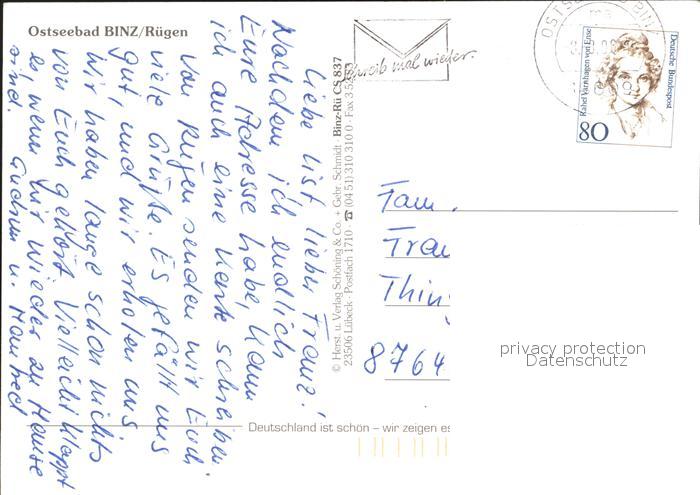 Ostseebad BINZ/Rügen
Liebe Lisl, lieber Franz!
Nachdem ich endlich
Eure Adresse habe, kann
ich auch eine Karte schreiben
Von Rügen senden wir Euch
viele Grüße. Es gefällt uns
gut, und wir erholen uns
Wir haben lange schon nichts
von Euch gehört. Vielleicht klappt
es, wenn wir wieder zu Hause
sind. Gudrun u. Manfred
© Herst. u. Verlag Schöning & Co. + Gebr. Schmidt · Binz-Rü CS 837
23506 Lübeck · Postfach 1710 · ☎ (04 51) 310 310 0 · Fax
Schreib mal wieder.
OSTSEEBAD BINZ
Rahel Varnhagen von Ense
Deutsche Bundespost
80
Fam.
Fran
Thin
8764
privacy protection
Datenschutz
Deutschland ist schön – wir zeigen es